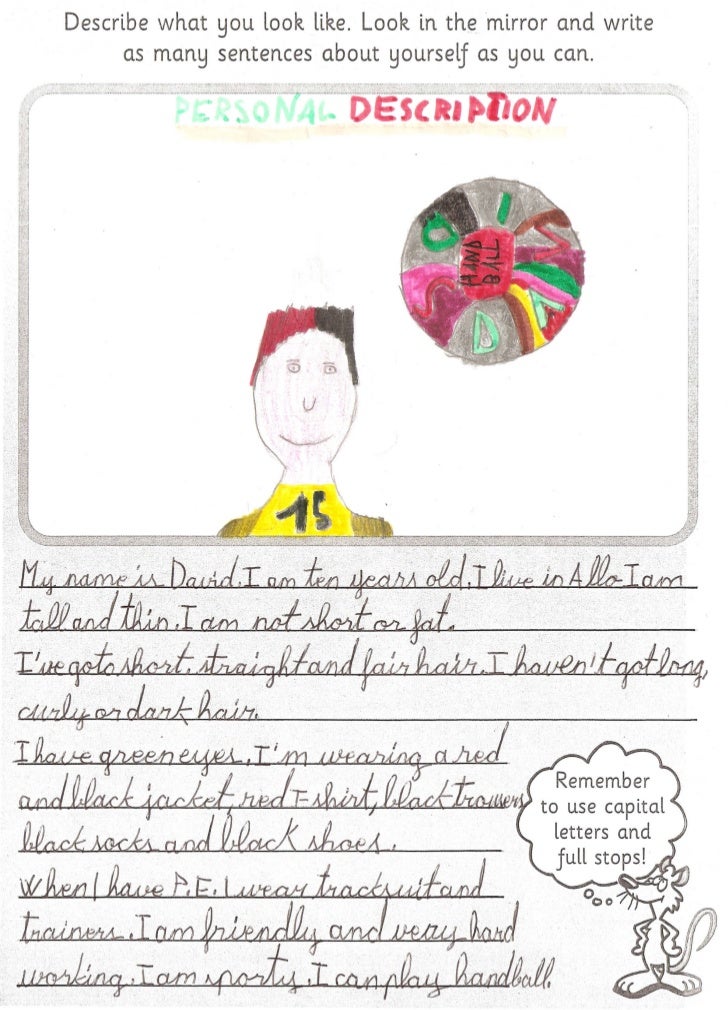 Describe what you look like. Look in the mirror and write
as many sentences about yourself as you can.
PERSONAL DESCRIPTION
DAVID
HAND
BALL
15
My name is David. I am ten years old. I live in Allo I am
tall and thin. I am not short or fat.
I've got short, straight and fair hair. I haven't got long,
curly or dark hair.
I have green eyes. I'm wearing a red
and black jacket, red T-shirt, black trousers
black socks and black shoes.
When I have P.E. I wear tracksuit and
trainers. I am friendly and very hard
working. I am sporty. I can play handball.
Remember
to use capital
letters and
full stops!